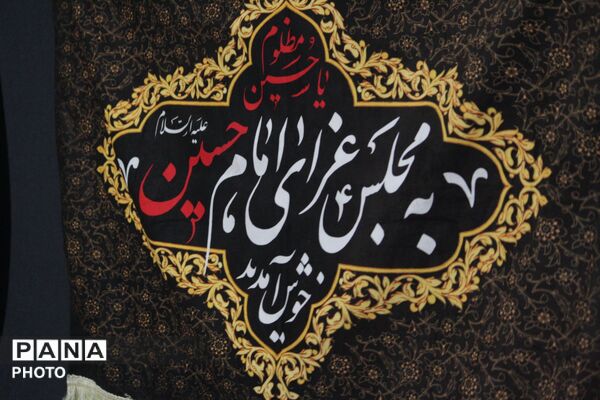 یا حسین مظلوم
به مجلس عزای امام حسین علیه السلام
خوش آمدید
PANA
PHOTO